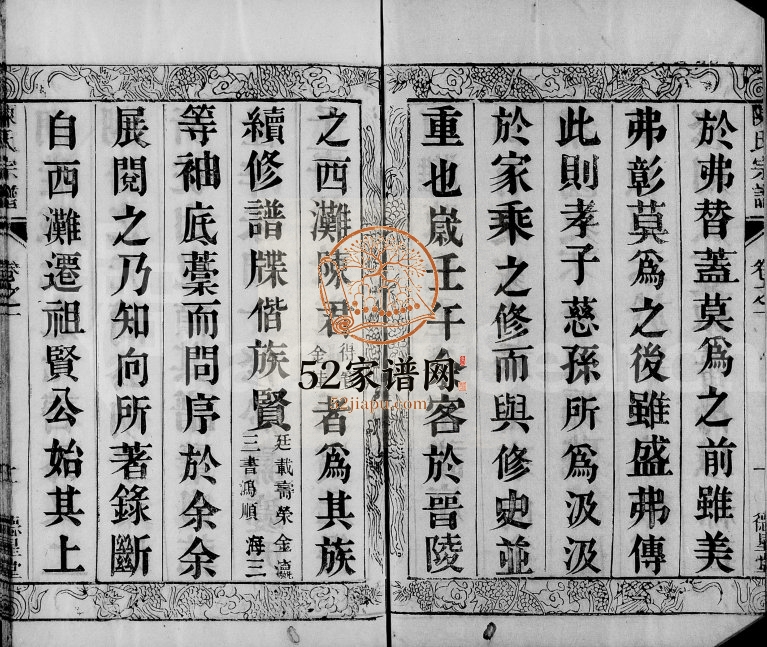 於弗替蓋莫爲之前雖美
弗彰莫爲之後雖盛弗傳
此則孝子慈孫所爲汲汲
於家乘之修而與修史並
重也歲壬午余客於晉陵
之西灘陳君 者爲其族
續修譜牒偕族賢
廷載壽榮金瀛
三書鴻順海三
等袖底藁而問序於余余
展閱之乃知向所著錄斷
自西灘遷祖賢公始其上
陳氏宗譜
卷之一
德星堂
52家谱网
52jiapu.com